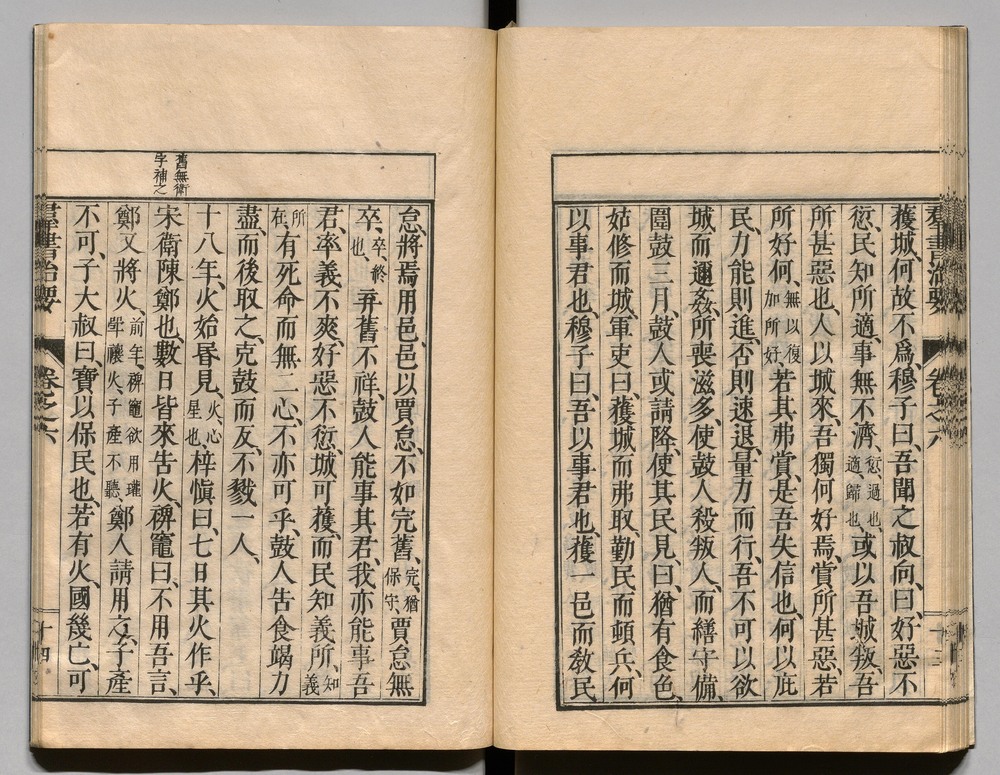 獲城、何故不爲、穆子曰、吾聞之叔向、曰、好惡不
愆、民知所適、事無不濟、愆、過也、適、歸也、或以吾城叛、吾
所甚惡也、人以城來、吾獨何好焉、賞所甚惡、若
所好何、無以復加所好、若其弗賞、是吾失信也、何以庇
民、力能則進、否則速退、量力而行、吾不可以欲
城而邇姦、所喪滋多、使鼓人殺叛人、而繕守備、
圍鼓三月、鼓人或請降、使其民見、曰、猶有食色、
姑修而城、軍吏曰、獲城而弗取、勤民而頓兵、何
以事君也、穆子曰、吾以事君也、獲一邑而敎民
羣書治要
卷之六
怠、將焉用邑、邑以賈怠、不如完舊、完、猶保守、賈怠無
卒、卒、終也、弃舊不祥、鼓人能事其君、我亦能事吾
君、率義不爽、好惡不愆、城可獲、而民知義所、知義所在、
有死命而無二心、不亦可乎、鼓人告食竭力
盡、而後取之、克鼓而反、不戮一人、
十八年、火始昏見、火、心星也、梓愼曰、七日其火作乎、
舊無衛字補之
宋衛陳鄭也、數日皆來告火、裨竈曰、不用吾言、
鄭又將火、前年、裨竈欲用瓘斝禳火、子產不聽、鄭人請用之、子產
不可、子大叔曰、寶以保民也、若有火、國幾亡、可
羣書治要
卷之六
十四